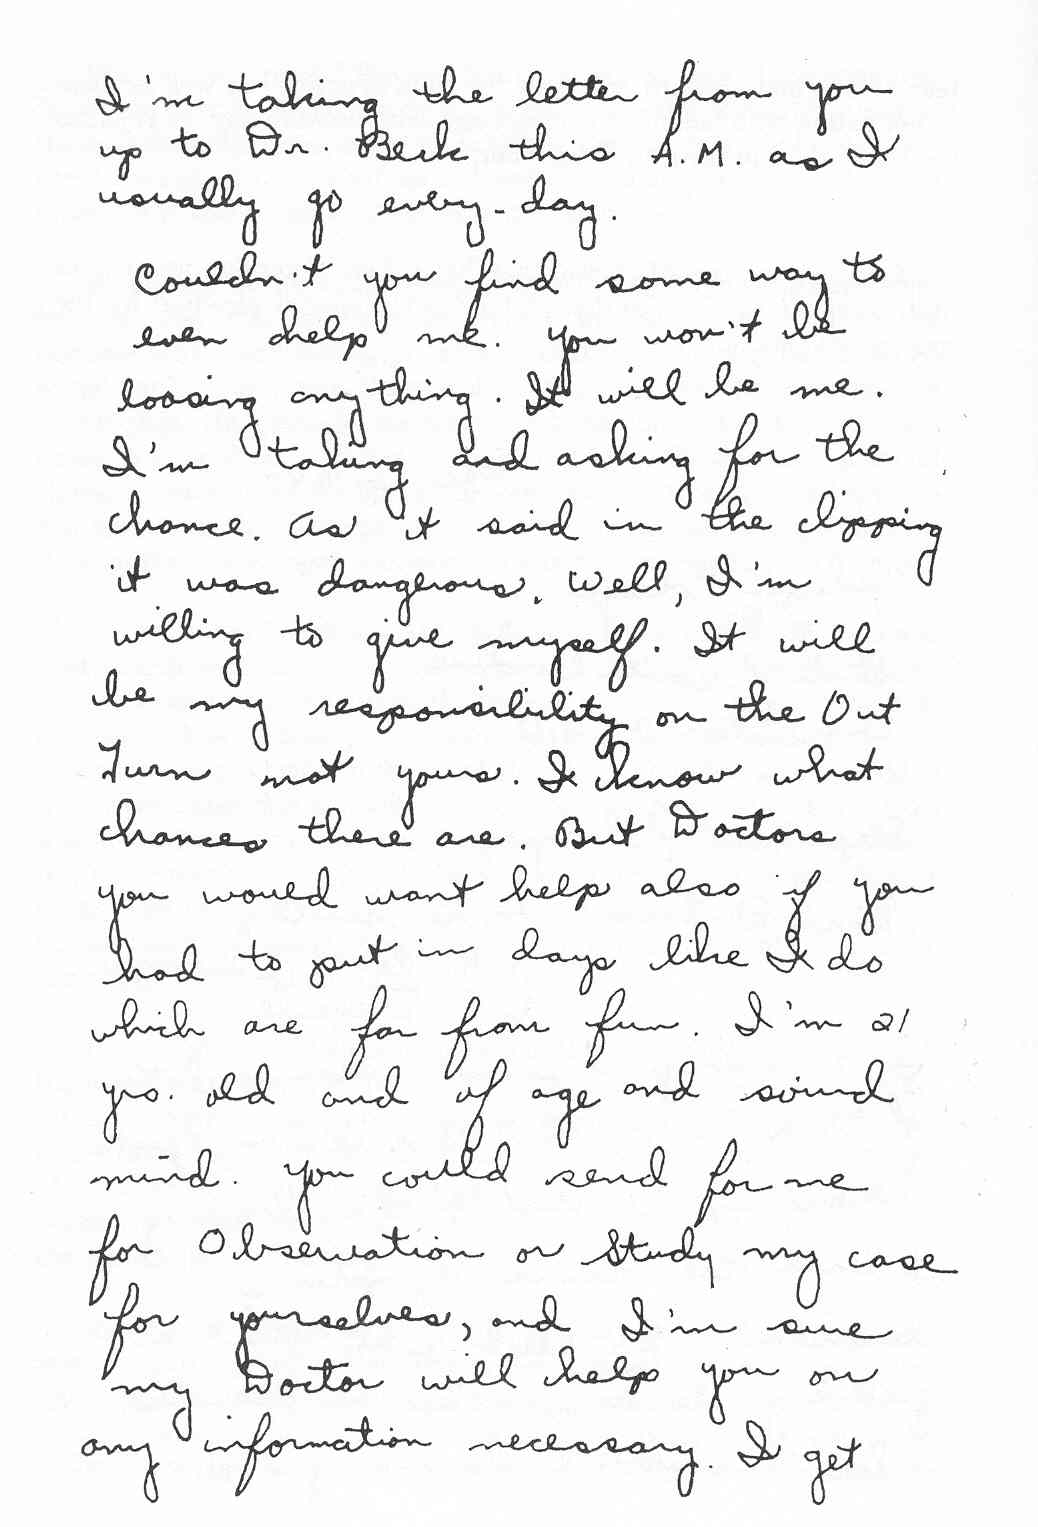 I'm taking the letter from you
up to Dr. Beck this A.M. as I
usually go every-day.
Couldn't you find some way to
even help me. You won't be
loosing anything. It will be me.
I'm taking and asking for the
chance. As it said in the clipping
it was dangerous. Well, I'm
willing to give myself. It will
be my responsibility on the Out
Turn not yours. I know what
chances there are. But Doctors
you would want help also if you
had to put in days like I do
which are far from fun. I'm 21
yrs. old and of age and sound
mind. You could send for me
for Observation or Study my case
for yourselves, and I'm sure
my Doctor will help you on
any information necessary. I get